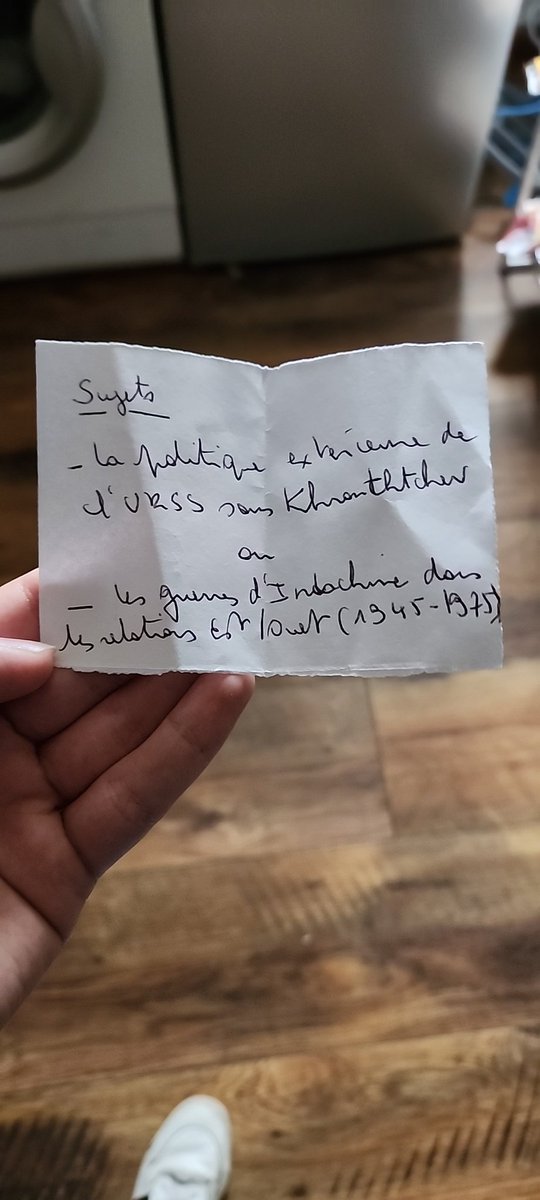 Sujets
- La politique extérieure de
l'URSS sous Khrouchtchev
ou
- Les guerres d'Indochine dans
les relations Est/Ouest (1945-1975)